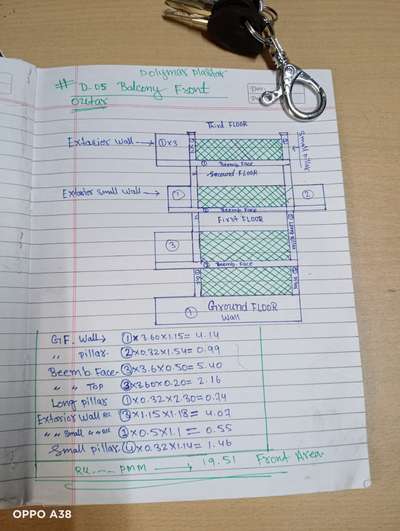 Polymar Plastor
# D-05 Balcony Front
Third FLOOR
Exterior Wall → ①×3
Small pillar
Beemb Face
Secound FLOOR
Exterior small wall → ①
②
Beemb Face
First FLOOR
③
Beemb. Face
Ground FLOOR
Wall
G.F. Wall → ①×3.60×1.15= 4.14
〃 pillar. ②×0.32×1.54= 0.99
Beemb Face- ③×3.6×0.50= 5.40
〃 〃 Top ③×3.60×0.20= 2.16
Long pillar ①×0.32×2.30= 0.74
Exterior Wall = ③×1.15×1.18= 4.07
〃 〃 Small 〃 = ①×0.5×1.1 = 0.55
Small pillar. ④×0.32×1.14= 1.46
19.51 Front Area
OPPO A38